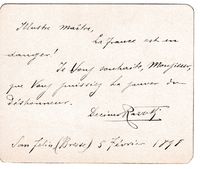 Illustre Maître,
La France est en
danger!
Je Vous souhaite, Monsieur,
que Vous puissiez la sauver du
déshonneur.
Decimo
San Felice 5 Février 1898